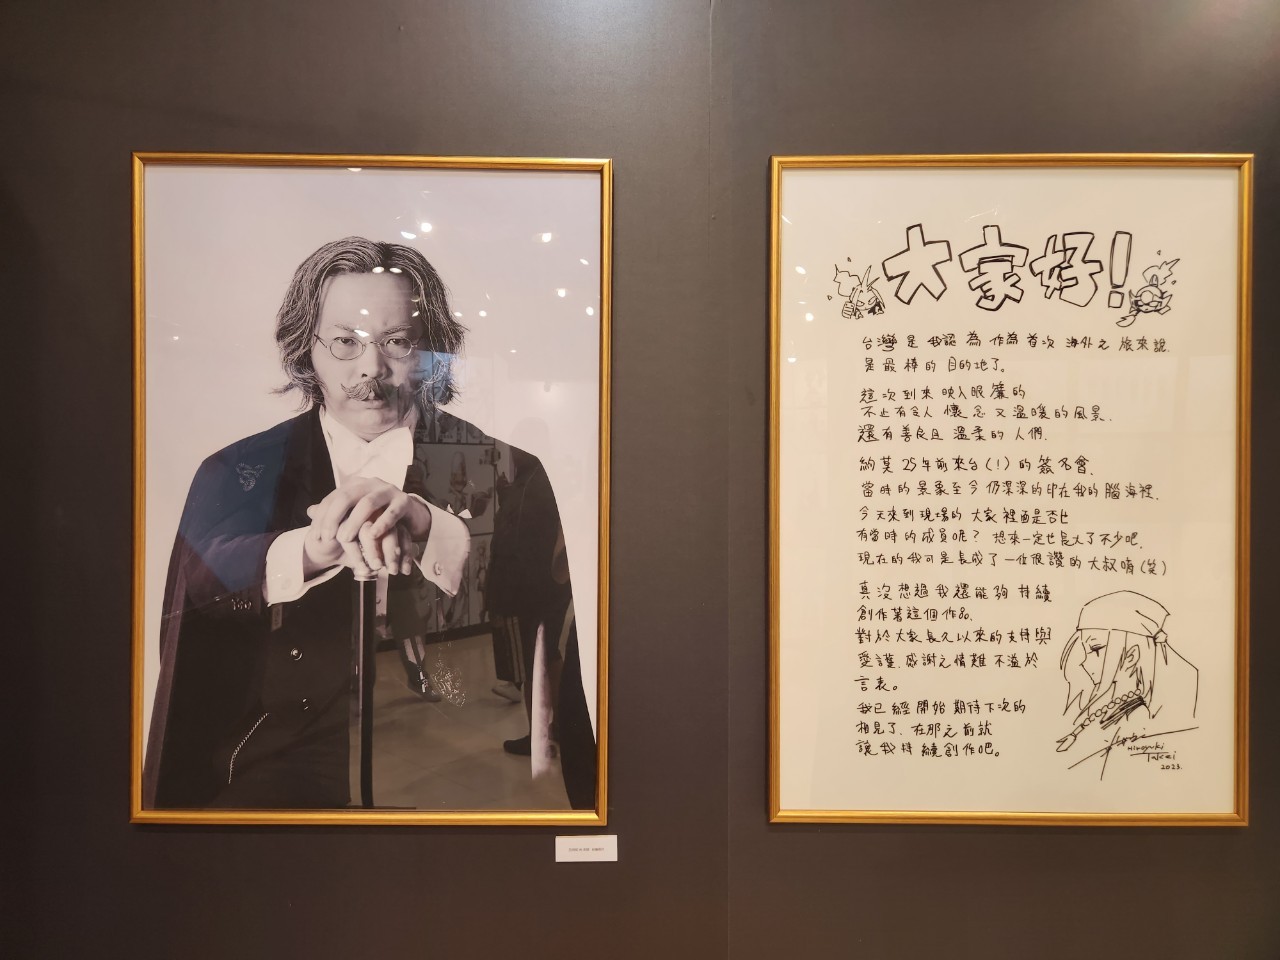 大家好！
台灣是我認為作為首次海外之旅來說，
是最棒的目的地了。
這次到來映入眼簾的
不止有令人懷念又溫暖的風景，
還有善良且溫柔的人們。
約莫25年前來台(！)的簽名會，
當時的景象至今仍深深的印在我的腦海裡。
今天來到現場的大家裡面是否也
有當時的成員呢？想來一定也長大了不少吧。
現在的我可是長成了一位很讚的大叔唷(笑)
真沒想過我還能夠持續
創作著這個作品。
對於大家長久以來的支持與
愛護，感謝之情難不溢於
言表。
我已經開始期待下次的
相見了，在那之前就
讓我持續創作吧。
Hiroyuki
Takei
2023.